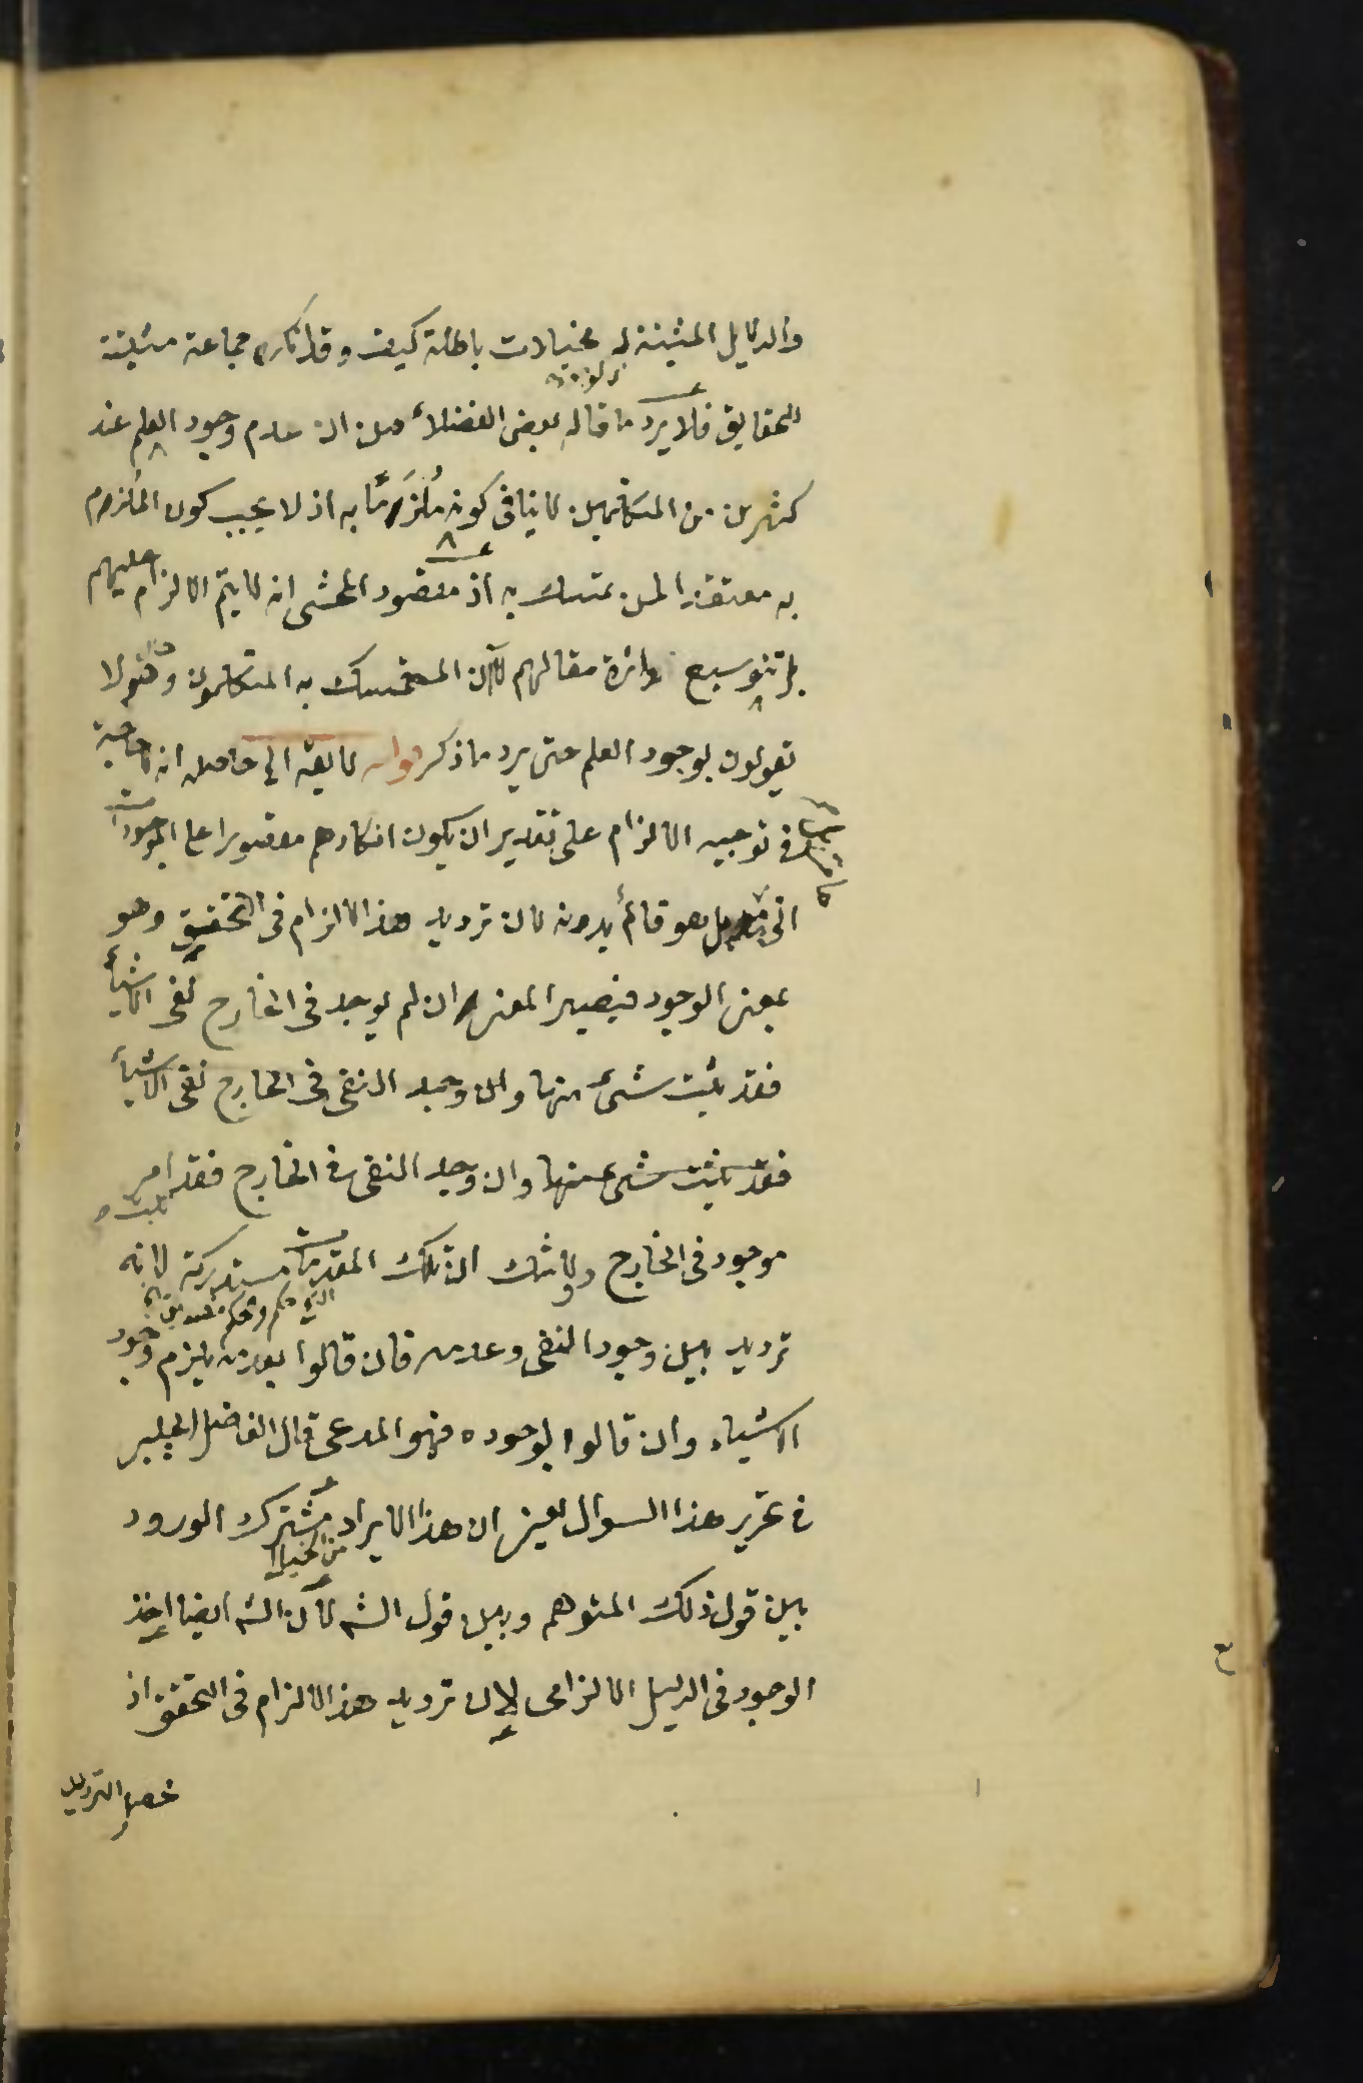 والدلايل المثبتة له مخيلات باطلة كيف وقد انكره جماعة مثبتة
الحقايق فلا يرد ما قاله بعض الفضلاء من ان عدم وجود العلم عند
كثير من المتكلمين لا ينافى كونه مُلزَمًا به اذ لا يجب كون الملزم
به معتقدا لمن تمسك به اذ مقصود المحشى انه لا يتم الالزام عليهم
بتوسيع دائرة مقالهم لان المتمسك به المتكلمون وهم لا
يقولون بوجود العلم حتى يرد ما ذكر قوله لا يقال حاصله انه لا حاجة
فى توجيه الالزام على تقدير ان يكون انكارهم مقصورا على الموجودات
بل هو قائم بدونه لان ترديد هذا الالزام فى التحقيق وهو
بمعنى الوجود فيصير المعنى ان لم يوجد فى الخارج نفى الاشياء
فقد يثبت شىء منها وان وجد النفى فى الخارج نفى الاشياء
فقد يثبت شىء منها وان وجد النفى فى الخارج فقد ثبت امر
موجود فى الخارج ولا شك ان تلك المقدمات مستدركة لانه
ترديد بين وجود النفى وعدمه فان قالوا بعدمه يلزم وجود
الاشياء وان قالوا بوجوده فهو المدعى قال الفاضل الجلبى
فى تحرير هذا السوال يعنى ان هذا الايراد مشترك الورود
بين قول ذلك المتوهم وبين قول الشه لان الشه ايضا اخذ
الوجود فى الدليل الالزامى لان ترديد هذا الالزام فى التحقق اذ
الترديد